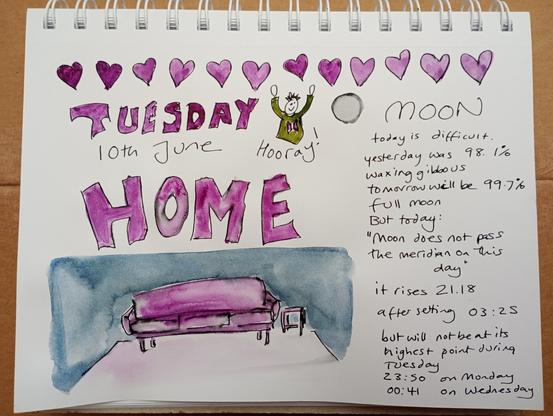 TUESDAY
10th June
Hooray!
HOME
MOON
today is difficult.
yesterday was 98.1%
waxing gibbous
tomorrow will be 99.7%
full moon
But today:
"Moon does not pass
the meridian on this
day"
it rises 21.18
after setting 03:25
but will not be at its
highest point during
Tuesday
23:50 on Monday
00:41 on Wednesday